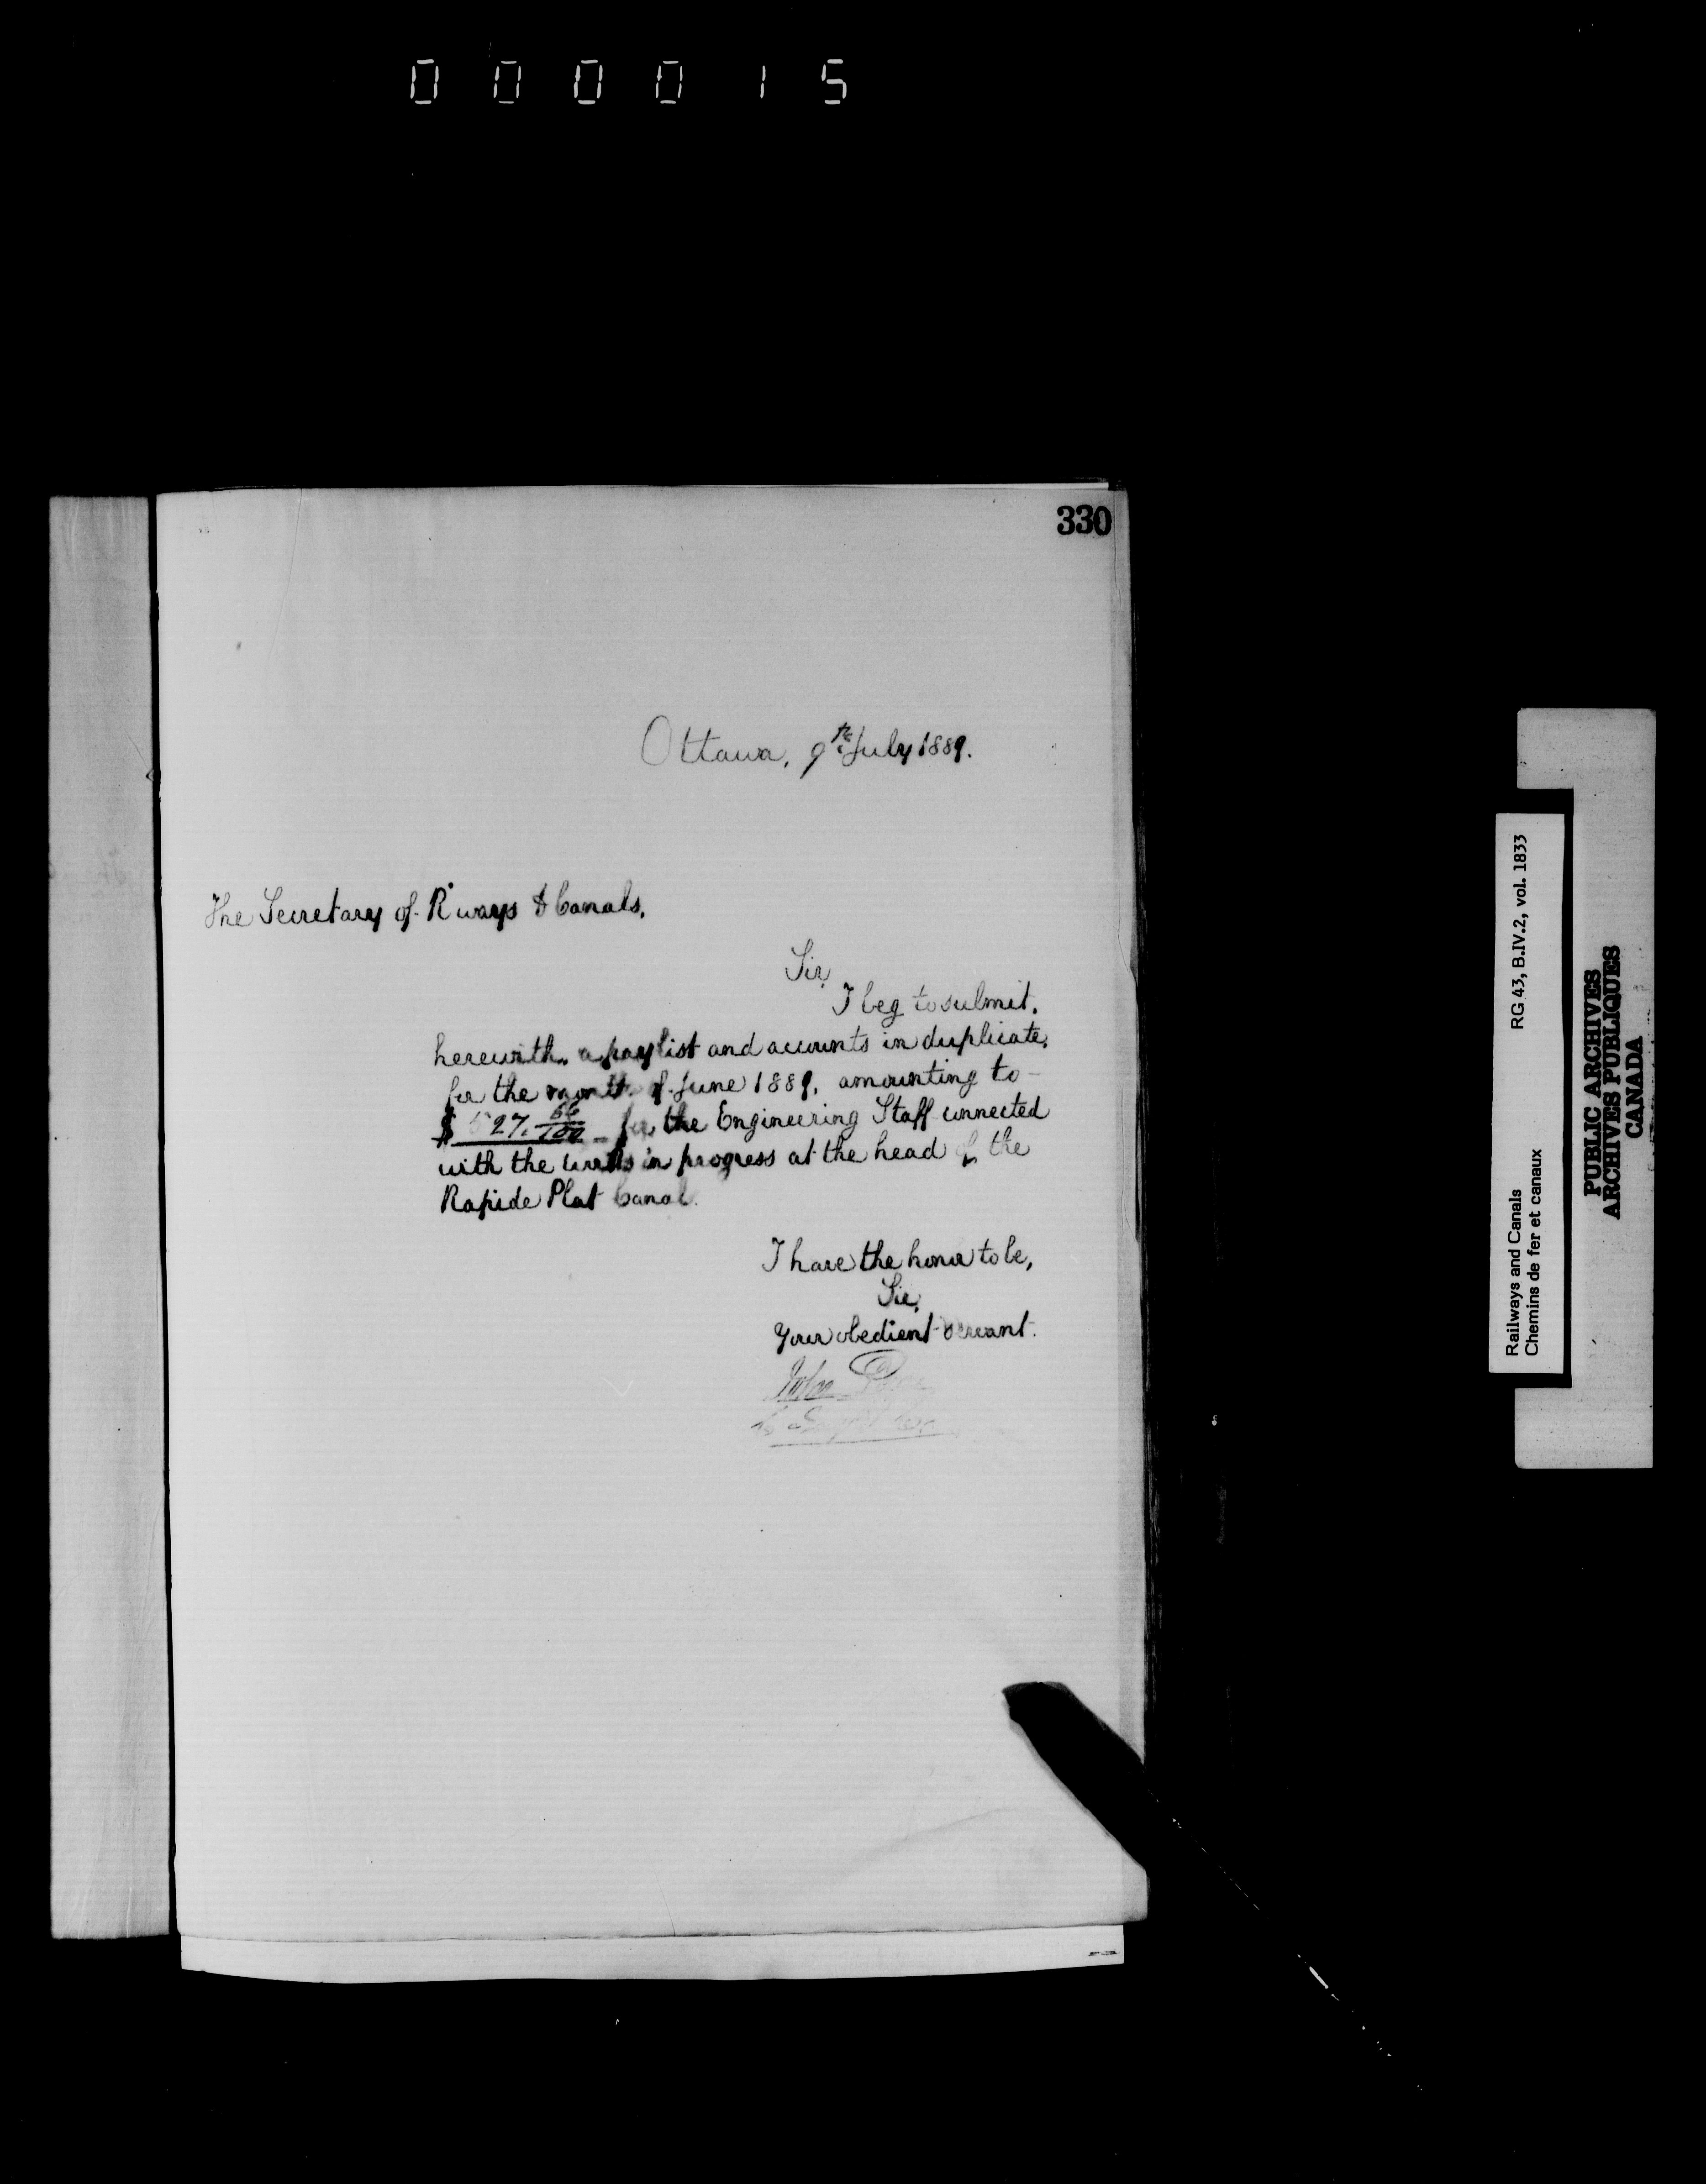 000015
330
Ottawa, 9th July 1889.
The Secretary of R'ways & Canals,
Sir,
I beg to submit,
herewith, a paylist and accounts in duplicate,
for the month of June 1889, amounting to -
$ 527. 56/100 - for the Engineering Staff connected
with the works in progress at the head of the
Rapide Plat Canal.
I have the honor to be,
Sir,
Your obedient servant.
John
Railways and Canals RG 43, B.IV.2, vol. 1833
Chemins de fer et canaux
PUBLIC ARCHIVES
ARCHIVES PUBLIQUES
CANADA